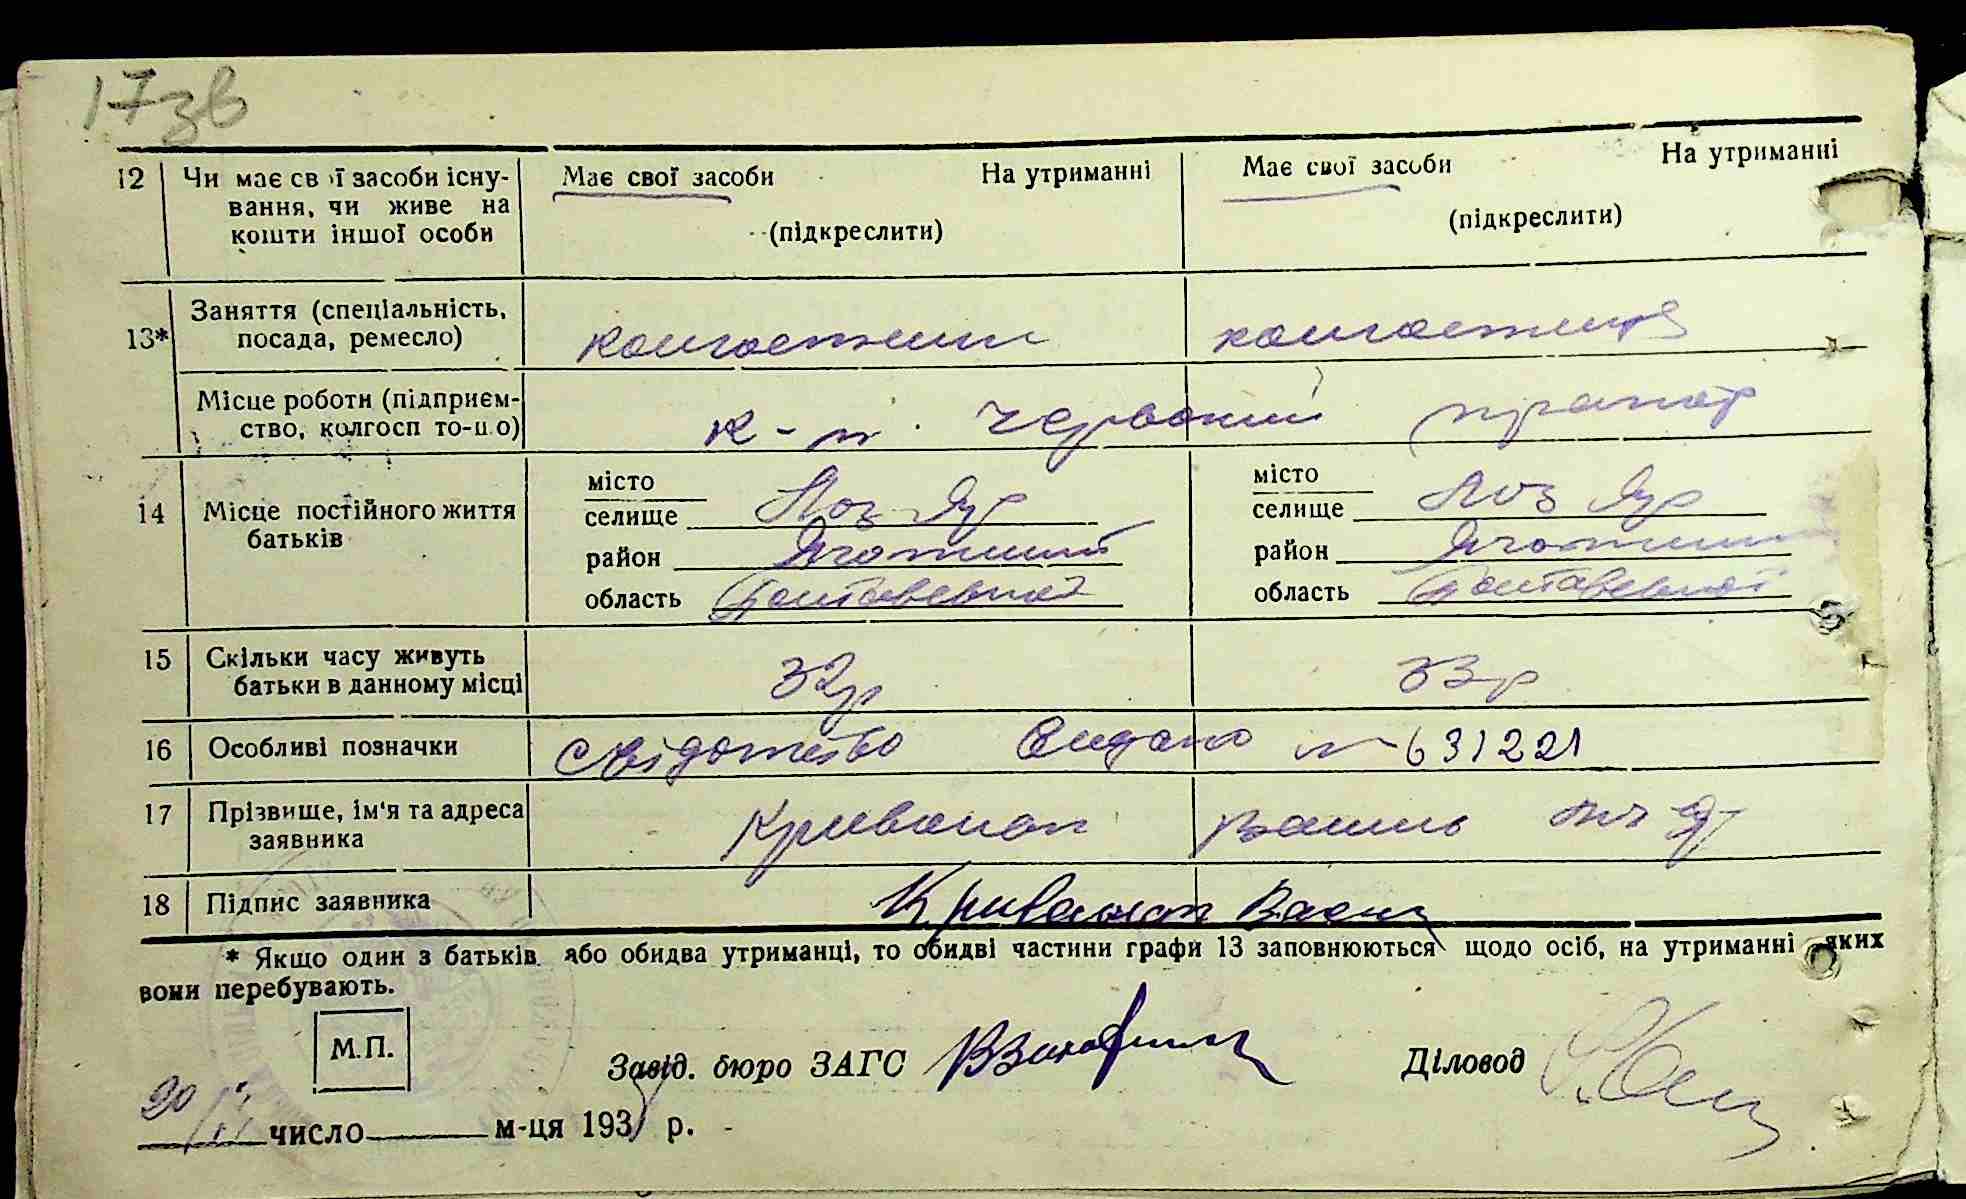 17зв
12 Чи має свої засоби існу- Має свої засоби На утриманні Має свої засоби На утриманні
вання, чи живе на
кошти іншої особи (підкреслити) (підкреслити)
13* Заняття (спеціальність,
посада, ремесло) колгоспник колгоспниця
Місце роботи (підприєм-
ство, колгосп то-що) к-п Червоний прапор
14 Місце постійного життя
батьків
місто
селище Лоз Яр
район Яготинский
область Полтавської
місто
селище Лоз Яр
район Яготинский
область Полтавської
15 Скільки часу живуть
батьки в данному місці 32р 33р
16 Особливі позначки Свідотство видано № 631221
17 Прізвище, ім'я та адреса
заявника Кривонон Василь
18 Підпис заявника
* Якщо один з батьків або обидва утриманці, то обидві частини графи 13 заповнюються щодо осіб, на утриманні яких
вони перебувають.
М.П.
Завід. бюро ЗАГС Діловод
20 число м-ця 193 р.